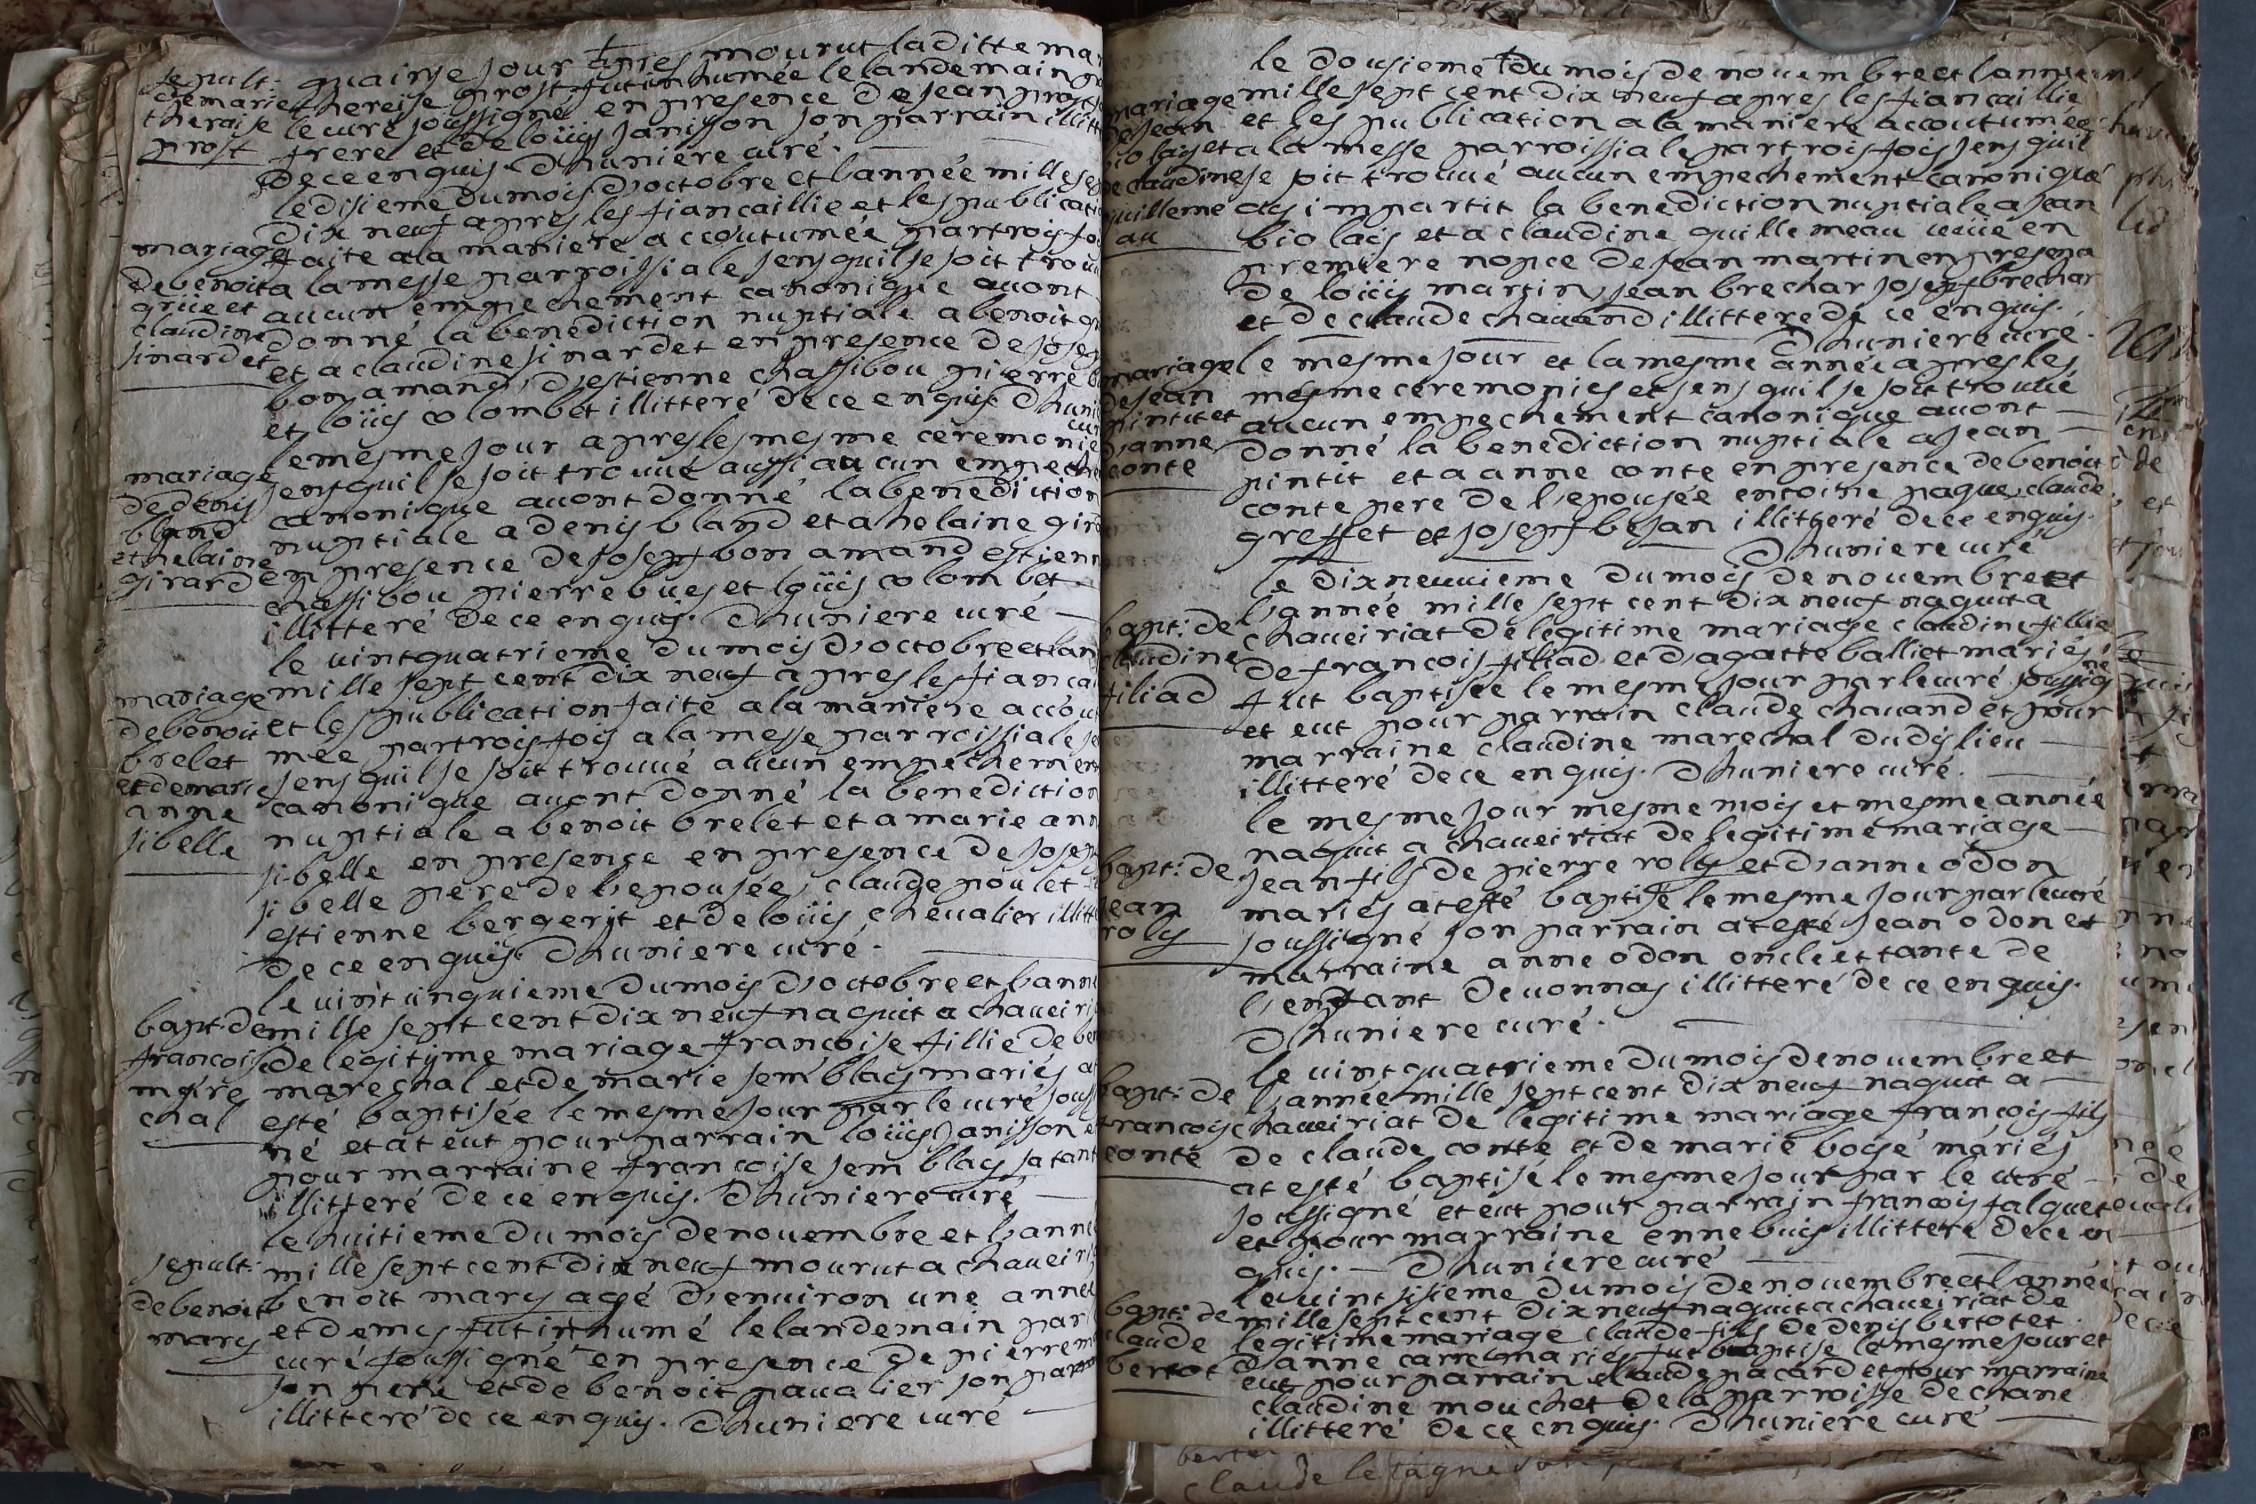 sepult:
de marie
theraise
prost
quainse jour apres mourut laditte mar
thereise prost fut inhumée le landemain p
le curé soussigné en presence de jean prost
frere et de loüis janisson son parrain illitt
de ce enquis. Dhuniere curé.
mariage
de benoit
grüe et
claudine
sinardet
le disieme du mois d'octobre et l'année mille sep
dix neuf apres les fiancaillie et les publicati
faite a la maniere accoutumée par trois fo
a la messe parroissiale sens quil se soit trouu
aucun empechement canonique auont
donné la benediction nuptiale a benoit g
et a claudine sinardet en presence de josep
bon amand, d'estienne chassibou pierre b
et loüis colombet illitteré de ce enquis. Dhuni
cur
mariage
de denis
bland
et helaine
girard
le mesme jour apres les mesme ceremonie
sens quil se soit trouué aussi aucun empeche
canonique auont donné la benediction
nuptiale a denis bland et a helaine gira
en presence de josepf bon amand estienn
chassibou pierre bues et loüis colombet
illitteré de ce enquis. Dhuniere curé
mariage
de benoit
brelet
et de marie
anne
sibelle
le vint quatrieme du mois d'octobre et l'an
mille sept cent dix neuf apres les fiancai
et les publication faite a la maniere accout
mée par trois fois a la messe parroissiale
sens quil se soit trouué aucun empechemen
canonique auont donné la benediction
nuptiale a benoit brelet et a marie ann
sibelle en presence en presence de josep
sibelle pere de l'epousée, claude poulet
estienne bergerit et de loüis chevalier illitt
de ce enquis. Dhuniere curé.
bapt: de
francois
mare
chal
le vint cinquieme du mois d'octobre et l'anne
mille sept cent dix neuf naquit a chaveiri
de legityme mariage francoise fillie de ben
marechal et de marie semblas mariés at
esté baptisée le mesme jour par le curé souss
né et at eut pour parrain loüis janisson e
pour marraine francoise semblas sa tant
illitteré de ce enquis. Dhuniere curé
sepult:
de benoit
marys
le huitieme du mois de nouembre et l'anne
mille sept cent dix neuf mourut a chaueiri
benoit marys agé d'enuiron une anne
et demis fut inhumé le landemain par l
curé soussigné en presence de pierre m
son pere et de benoit paualier son parra
illitteré de ce enquis. Dhuniere curé
mariage
de jean
biolais et
de claudine
guilleme
au
le dousieme du mois de nouembre et l'annee
mille sept cent dix neuf apres les fiancaillie
et les publication a la maniere accoutumée
et a la messe parroissiale par trois fois sens quil
se soit trouué aucun empechement canonique
ais impartit la benediction nuptiale a jean
biolais et a claudine guillemeau ueue en
premiere nopce de jean martin en presena
de loüis martin, jean brechar josepf brechar
et de claude chauand illittere de ce enquis.
Dhuniere curé.
mariage
de jean
pintit et
d'anne
conte
le mesme jour et la mesme année apres les
mesme ceremonies et sens quil se soit trouué
aucun empechement canonique auont
donné la benediction nuptiale a jean
pintit et a anne conte en presence de benoit
conte pere de l'epousée entoine paque, claude
greffet et josepf bejan illitteré de ce enquis.
Dhuniere curé
bapt: de
claudine
filiad
le dix neuuieme du mois de nouembre et
l'année mille sept cent dix neuf naquit a
chaueiriat de legitime mariage claudine fillie
de francois filiad et d'agatte balliet mariés
fut baptisée le mesme jour par le curé soussig
né
et eut pour parrain claude chauand et pour
marraine claudine marechal dudis lieu
illitteré de ce enquis. Dhuniere curé.
bapt: de
jean
roly
le mesme jour mesme mois et mesme année
naquit a chaueiriat de legitime mariage
jean fils de pierre roly et d'anne odon
mariés at esté baptisé le mesme jour par le curé
soussigné son parrain at esté jean odon et
marraine anne odon oncle et tante de
l'enfant de uonnas illitteré de ce enquis.
Dhuniere curé.
bapt: de
francois
conte
le uint quatrieme du mois de nouembre et
l'année mille sept cent dix neuf naquit a
chaueiriat de legitime mariage francois fils
de claude conte et de marie boisé mariés
at esté baptisé le mesme jour par le curé
soussigné et eut pour parrain francois falquet
et pour marraine enne buis illittere de ce en
quis. Dhuniere curé
bapt: de
claude
bertot
le uint sisieme du mois de nouembre et l'année
mille sept cent dix neuf naquit a chaueiriat de
legitime mariage claude fils de denis bertot et
d'anne carre mariés fut baptise le mesme jour et
eut pour parrain claude pacard et pour marraine
claudine mouchet de la parroisse de chane
illitteré de ce enquis. Dhuniere curé
claude le